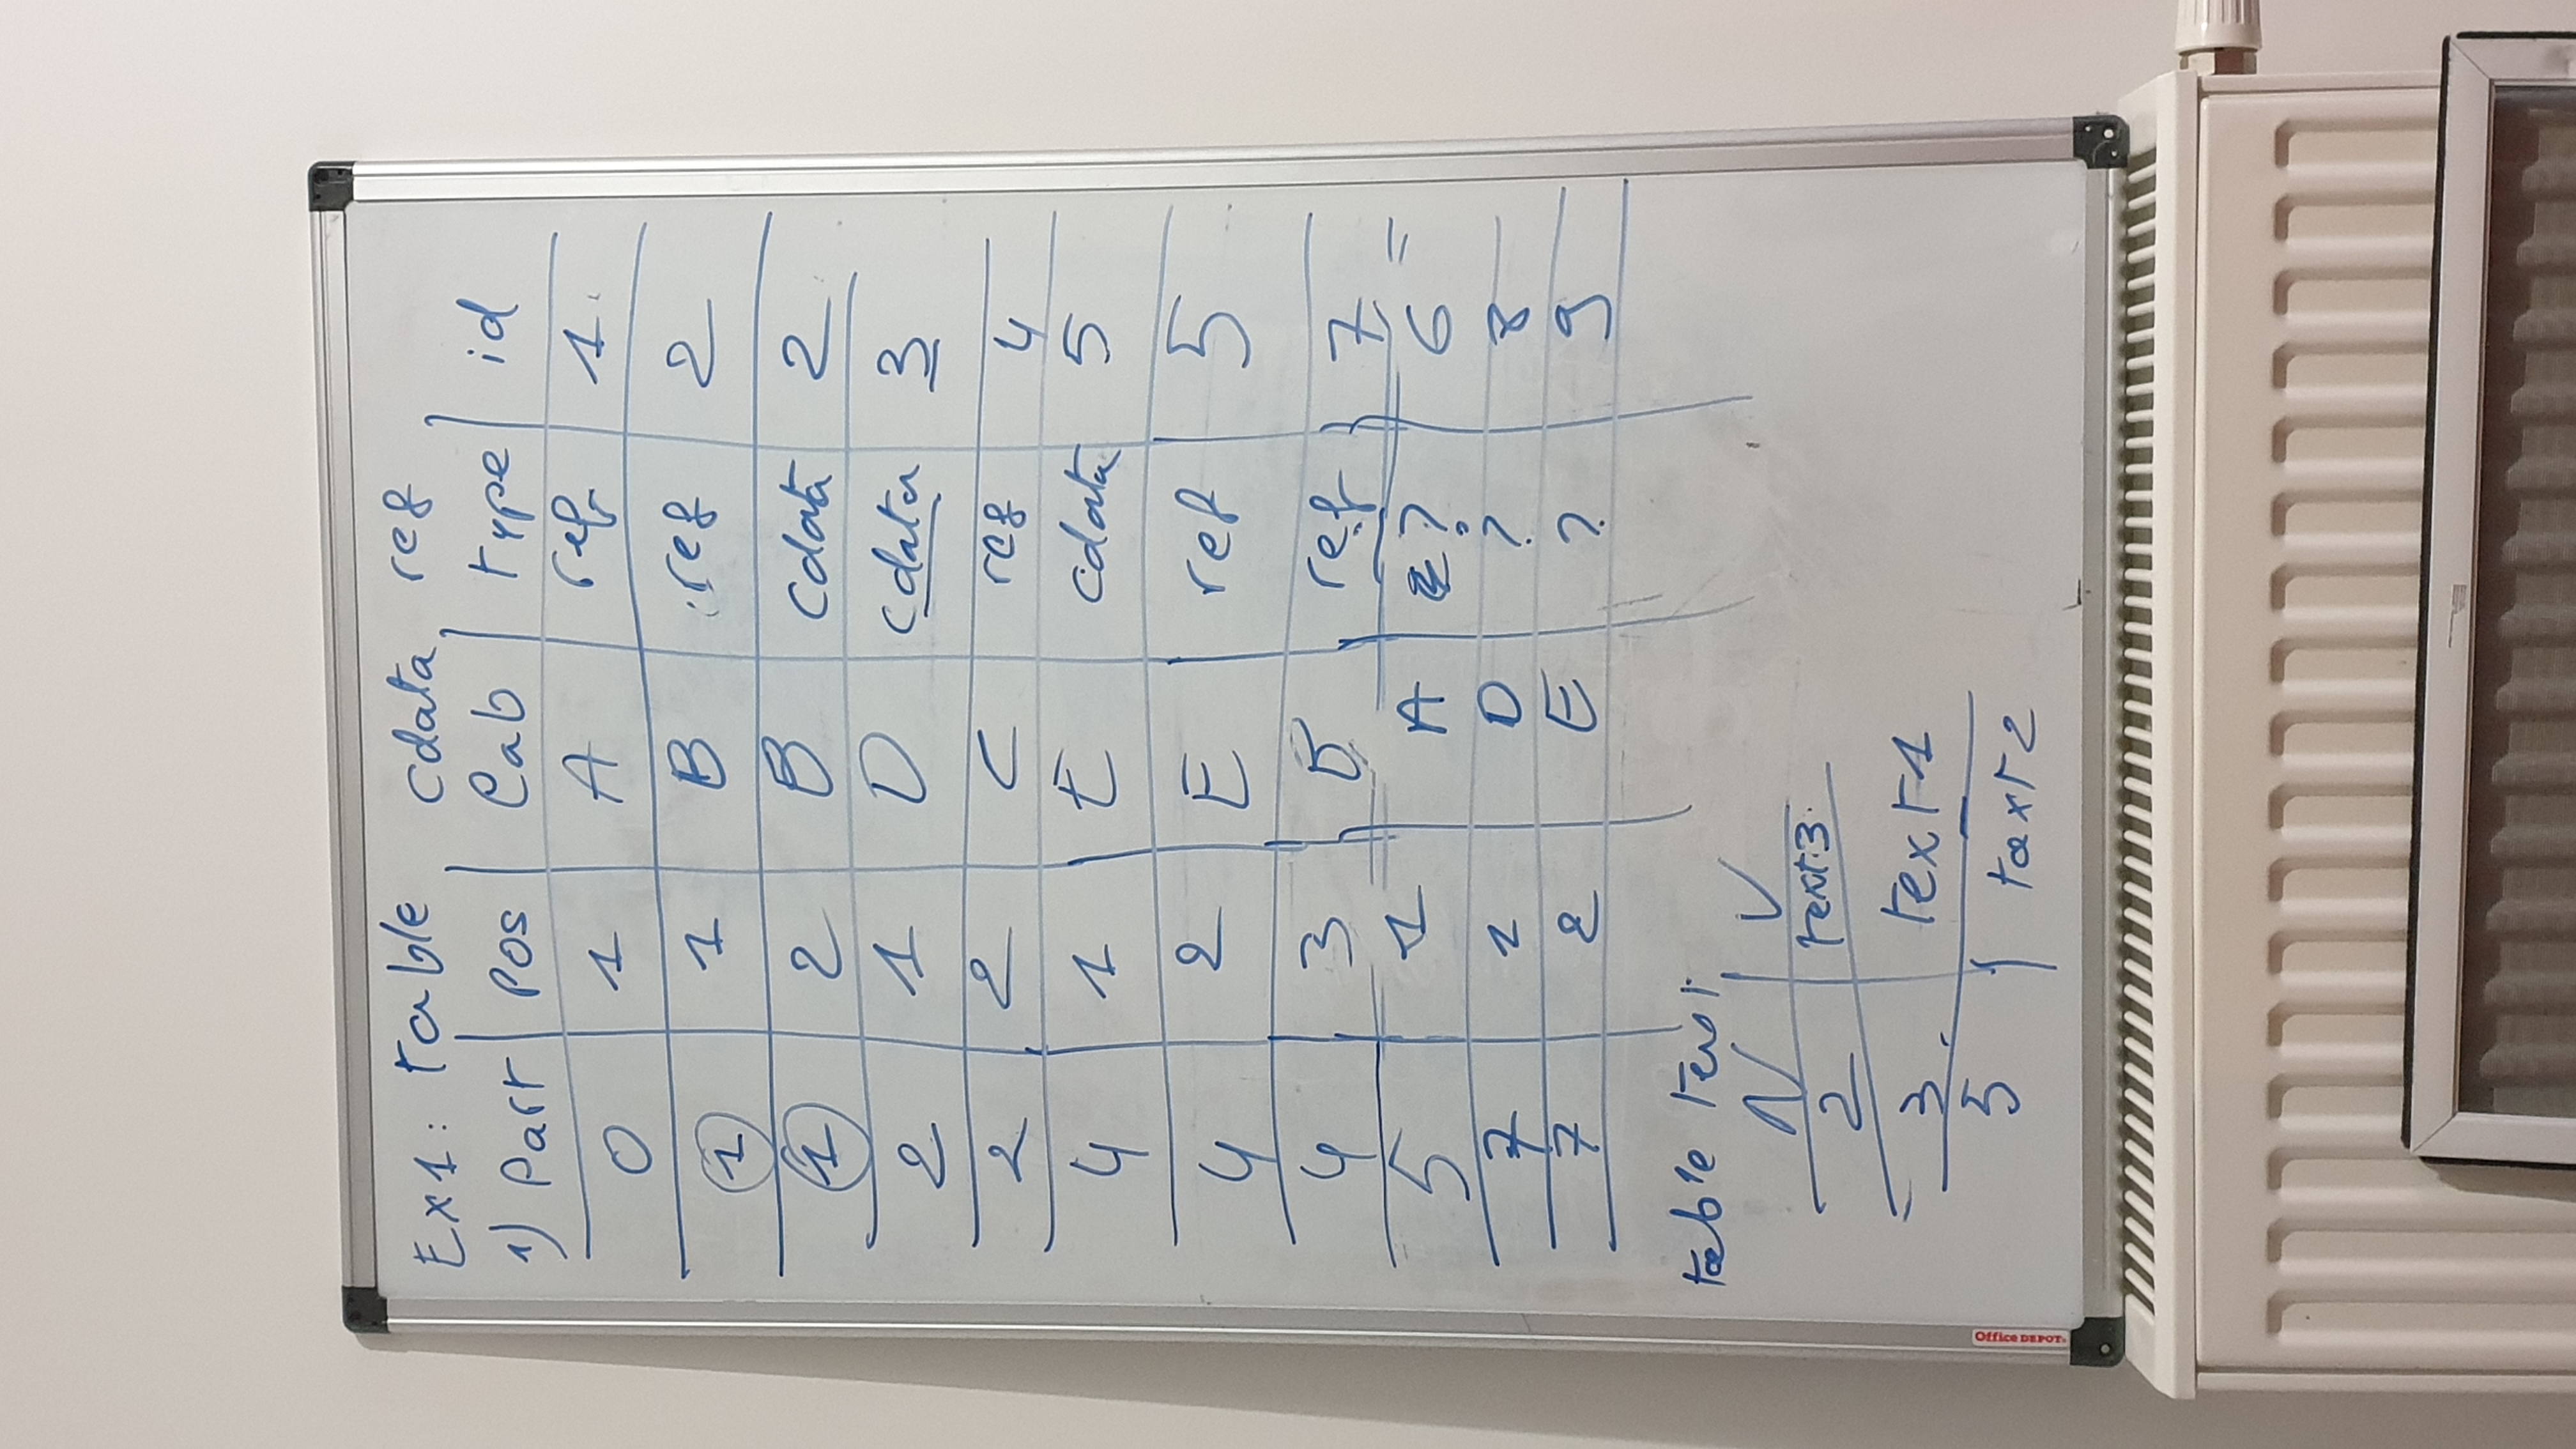 Ex1: table cdata ref
1) Part pos lab type id
0 1 A ref 1
1 1 B ref 2
1 2 B cdata 2
2 1 D cdata 3
2 2 C ref 4
4 1 E cdata 5
4 2 E ref 5
4 3 B ref 7
5 1 A ? 6
7 1 D ? 8
7 2 E ? 9
table text
N V
2 text3
3 text1
5 text2
Office DEPOT